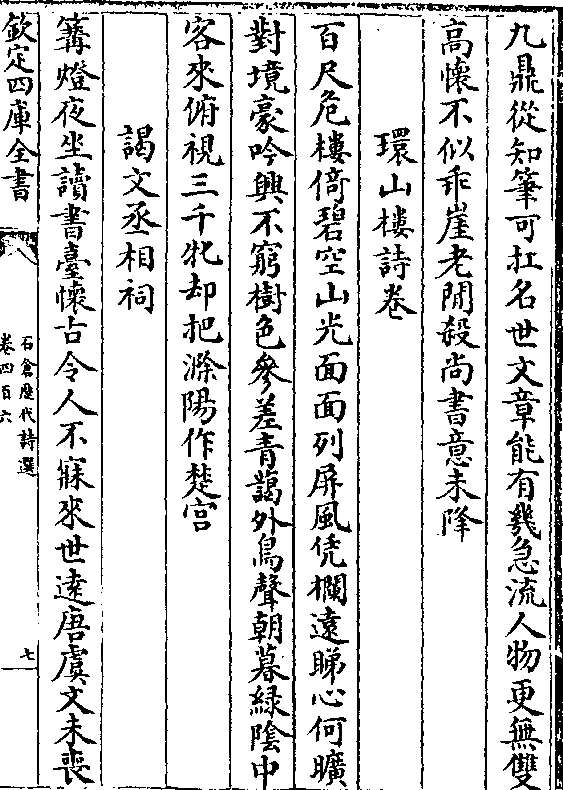 九鼎從知筆可扛名世文章能有幾急流人物更無雙
高懷不似乖崖老閒殺尚書意未降
環山樓詩卷
百尺危樓倚碧空山光面面列屏風凭欄遠睇心何曠
對境豪吟興不窮樹色參差青藹外鳥聲朝暮緑陰中
客來俯視三千牝却把滁陽作楚宫
謁文丞相祠
篝燈夜坐讀書臺懷古令人不寐來世逺唐虞文未喪
欽定四庫全書
石倉歴代詩選
卷四百六
七